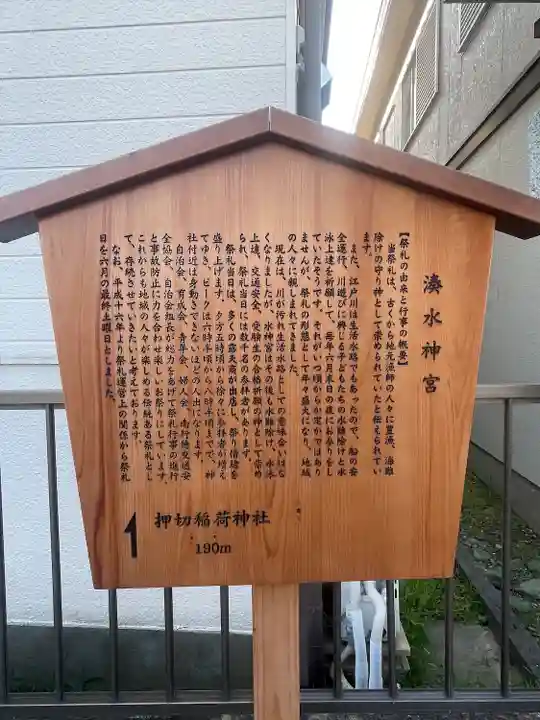 湊水神宮
【祭礼の由来と行事の概要】
当祭礼は、古くから地元漁師の人々に豊漁、海難
除けの守り神として崇められていたと伝えられてい
ます。
また、江戸川は生活水路でもあったので、船の安
全運行、川遊びに興じる子どもたちの水難除けと水
泳上達を祈願して、毎年六月末日の夜にお参りをし
ていたそうです。それがいつ頃からか定かではあり
ませんが、祭礼の形態として年々盛大になり、地域
の人々に親しまれてきました。
現在は、川が汚れ生活水路としての意味合いはな
くなりましたが、水神宮はその後も水難除け、水泳
上達、交通安全、受験生の合格祈願の神として崇め
られ、祭礼当日には数千名の参拝者があります。
祭礼当日は、多くの露天商が出店し、祭り情緒を
盛り上げます。夕方五時頃から徐々に参拝者が増え
てゆき、ピークは六時半頃から八時半頃までで、神
社付近は身動きできないほどの人出になります。
自治会、育成会、青年会、婦人会、南行徳交通安
全協会、自治会組長が総力をあげて祭礼行事の進行
と事故防止に力を合わせ楽しいお祭りにしています。
これからも地域の人々が楽しめる伝統ある祭礼とし
て、存続させていきたいと考えております。
なお、平成十六年より祭礼運営上の関係から祭礼
日を六月の最終土曜日としました。
押切稲荷神社
190m